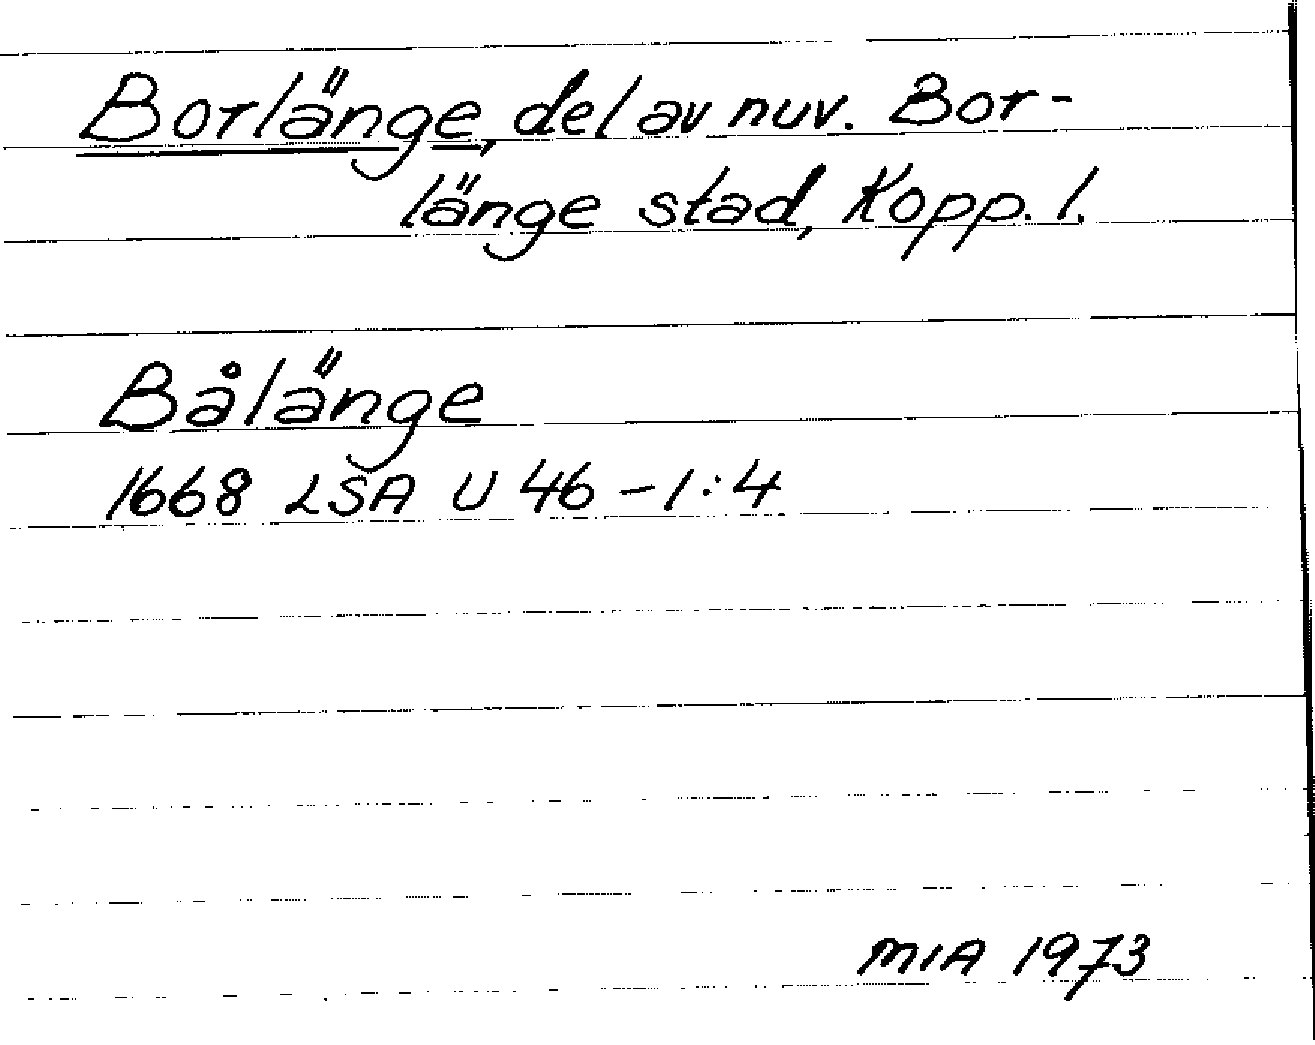 Borlänge, del av nuv. Bor-
länge stad, Kopp. l.
Bålänge
1668 LSA U 46-1:4
MIA 1973